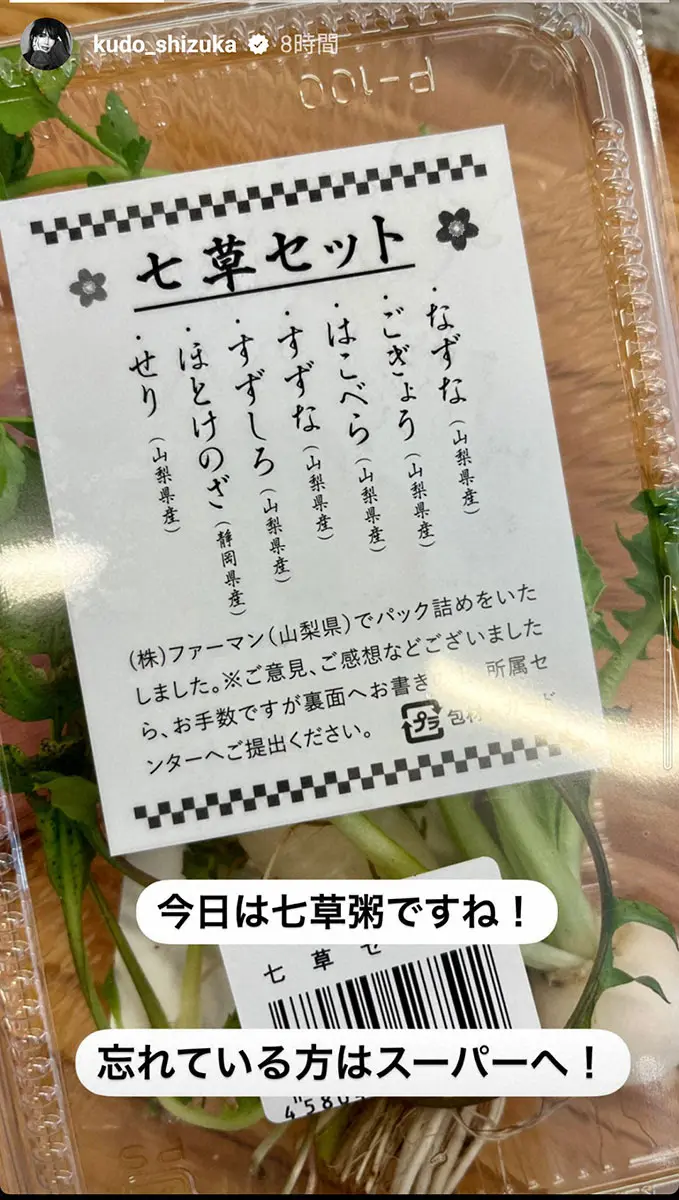 kudo_shizuka 8時間
P-100
七草セット
・なずな(山梨県産)
・ごぎょう(山梨県産)
・はこべら(山梨県産)
・すずな(山梨県産)
・すずしろ(山梨県産)
・ほとけのざ(静岡県産)
・せり(山梨県産)
(株)ファーマン(山梨県)でパック詰めをいた
しました。※ご意見、ご感想などございました
ら、お手数ですが裏面へお書き 所属セ
ンターへご提出ください。
プラ 包材
今日は七草粥ですね！
七草セ
忘れている方はスーパーへ！
4580